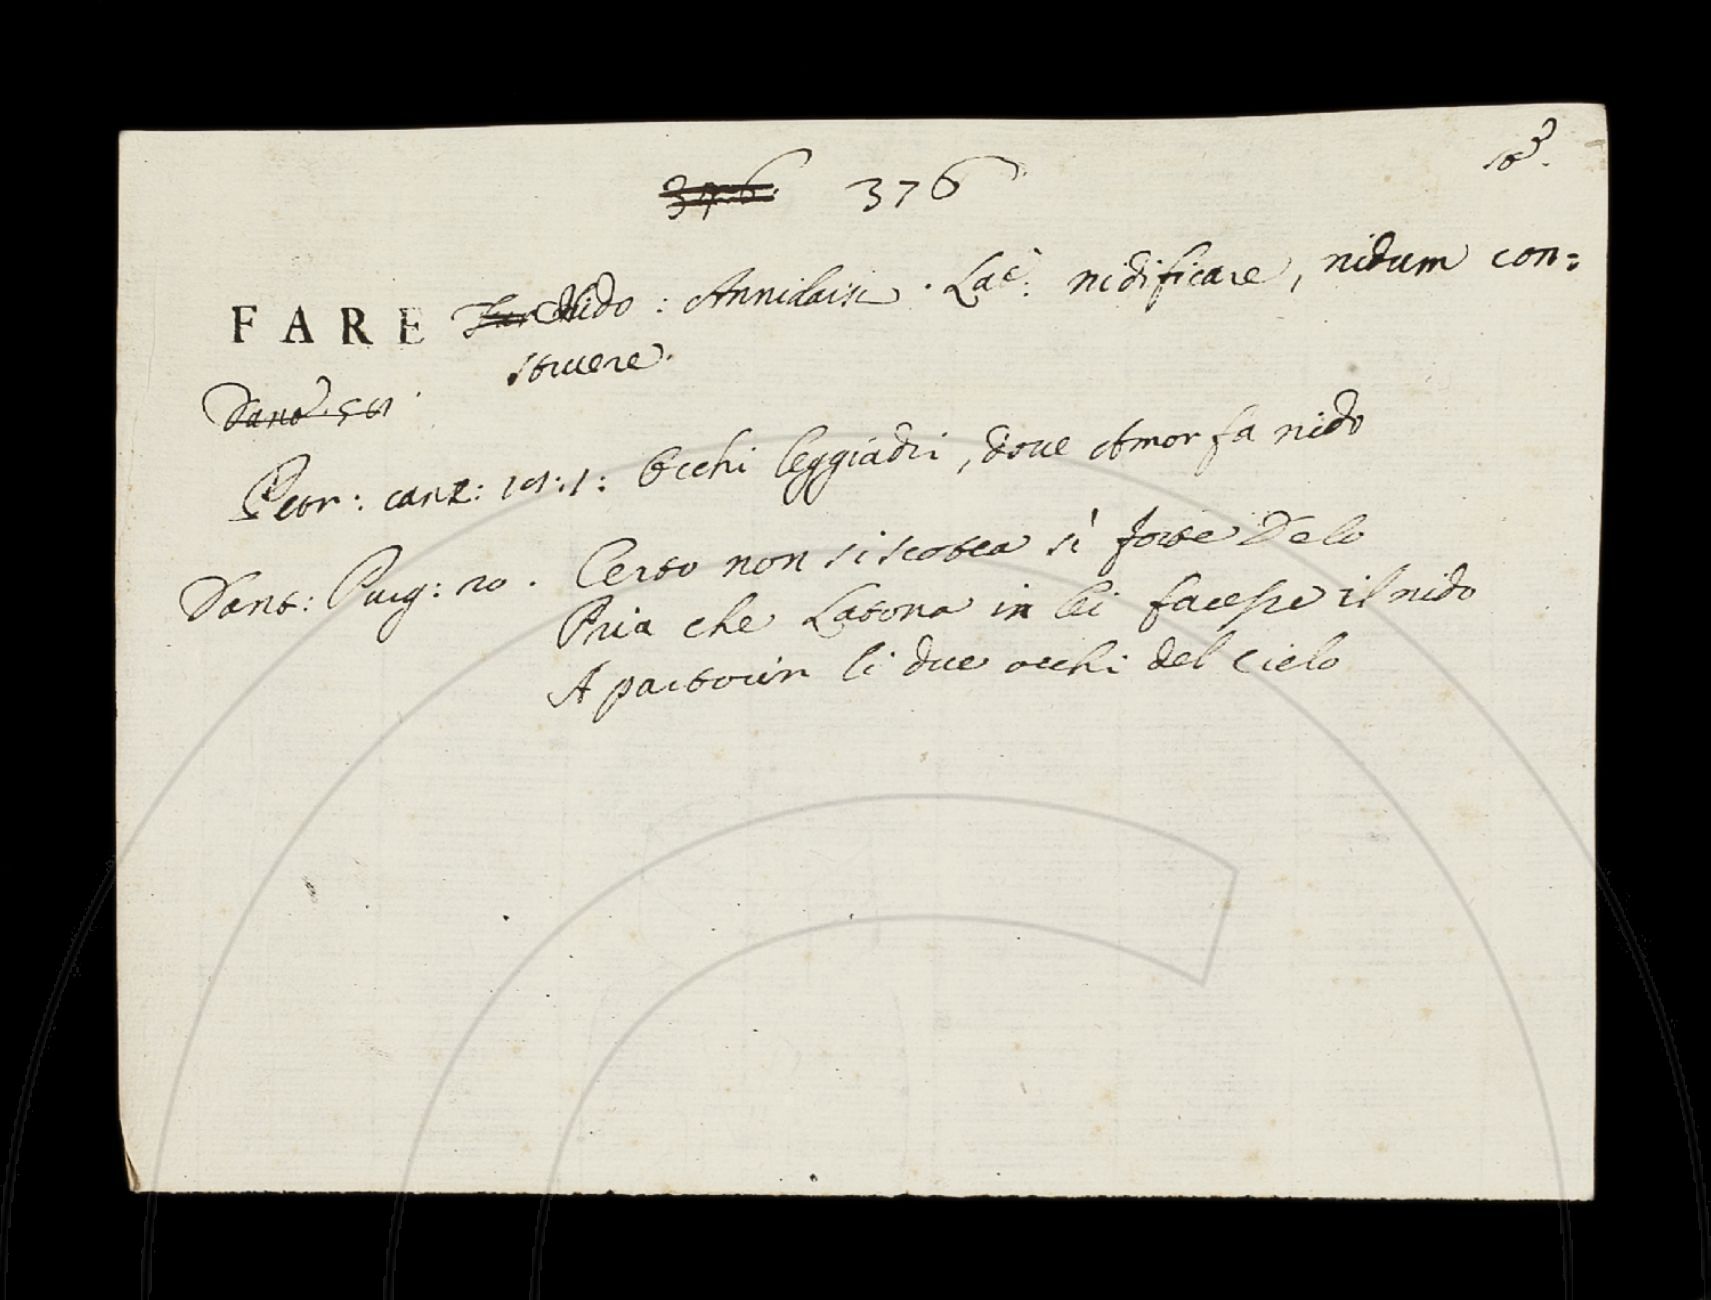 103.
376. 376
FARE Far Nido : Annidarsi . Lat: nidificare, nidum con=
struere.
Dant.
Petr: canz: 19.1: Occhi leggiadri, dove Amor fa nido
Dant: Purg: 20. Certo non si scotea sì forte Delo
Pria che Latona in lei facesse il nido
A parturir li due occhi del cielo